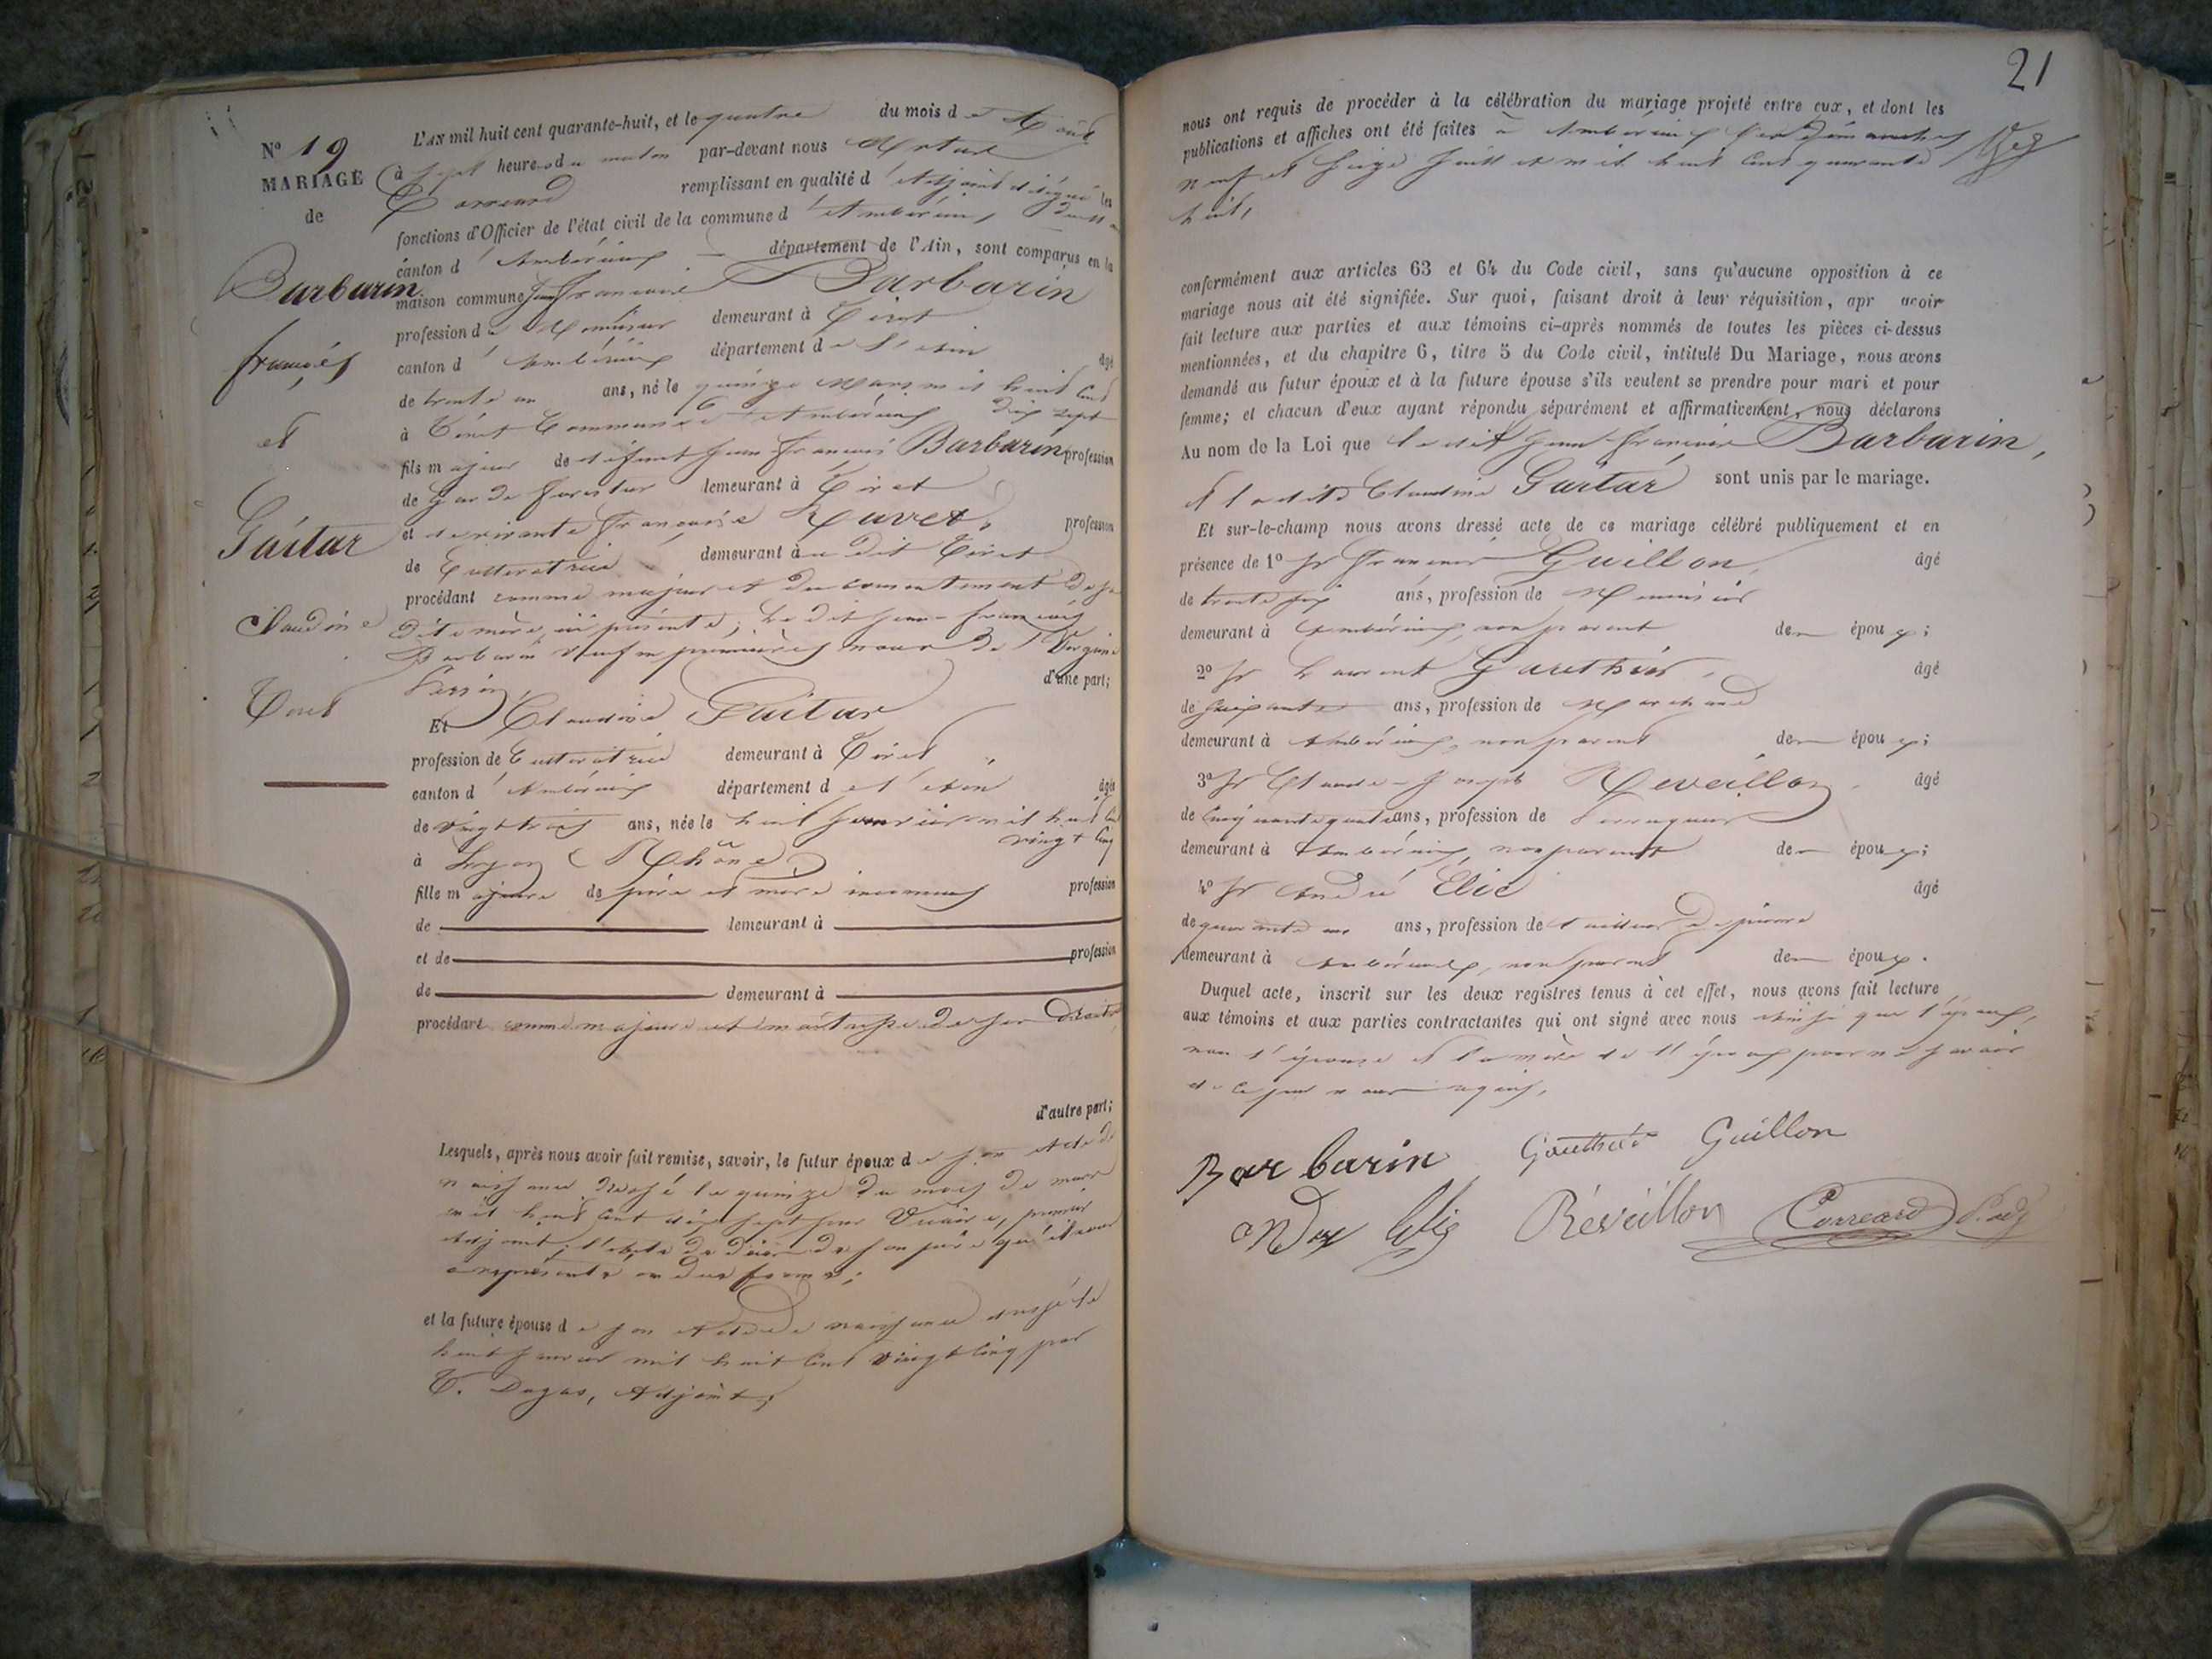 N° 19
MARIAGE
de
Barbarin
françois
et
Gaïtar
Claudine
Tiret
L'AN mil huit cent quarante-huit, et le quatre du mois d'Août
à sept heures du matin par-devant nous
Correard remplissant en qualité d'Adjoint délégué les
fonctions d'Officier de l'état civil de la commune d'Ambérieux,
canton d'Ambérieux département de l'Ain, sont comparus en la
maison commune Jean françois Barbarin
profession de Menuisier demeurant à Tiret
canton d'Ambérieux département de l'Ain âgé
de trente un ans, né le quinze Mars mil huit Cent
dix sept
à Tiret Commune d'Ambérieux
fils majeur de défunt Jean françois Barbarin profession
de Garde forestier demeurant à Tiret
et de vivante françoise Ravet, profession
de Cultivatrice demeurant au dit Tiret
procédant comme majeur et du consentement de sa
dite mère ici présente; Le dit Jean-françois
Barbarin veuf en premières noces de Virginie
d'une part;
Et Claudine Gaitar
profession de Cultivatrice demeurant à Tiret
canton d'Ambérieux département de l'Ain âgée
de vingt trois ans, née le huit Janvier mil huit Cent
vingt Cinq
à Lyon (Rhône)
fille majeure de père et mère inconnus profession
de demeurant à
et de profession
de demeurant à
procédant comme majeure et maîtresse de ses droits
d'autre part;
Lesquels, après nous avoir fait remise, savoir, le futur époux de son Acte de
naissance dressé le quinze du mois de mars
mil huit Cent dix sept par premier
Adjoint; l'acte de décès de son père qu'il nous
a représenté en due forme;
et la future épouse de son Acte de naissance dressé le
huit Janvier mil huit Cent vingt Cinq par
T. Dugas, Adjoint;
21
nous ont requis de procéder à la célébration du mariage projeté entre eux, et dont les
publications et affiches ont été faites à Ambérieux les dimanches
neuf et seize Juillet mil huit Cent quarante
huit,
conformément aux articles 63 et 64 du Code civil, sans qu'aucune opposition à ce
mariage nous ait été signifiée. Sur quoi, faisant droit à leur réquisition, apr avoir
fait lecture aux parties et aux témoins ci-après nommés de toutes les pièces ci-dessus
mentionnées, et du chapitre 6, titre 5 du Code civil, intitulé Du Mariage, nous avons
demandé au futur époux et à la future épouse s'ils veulent se prendre pour mari et pour
femme; et chacun d'eux ayant répondu séparément et affirmativement, nous déclarons
Au nom de la Loi que le dit Jean-françois Barbarin,
et la dite Claudine Gaitar sont unis par le mariage.
Et sur-le-champ nous avons dressé acte de ce mariage célébré publiquement et en
présence de 1° Sr françois Guillon, âgé
de trente six ans, profession de Menuisier
demeurant à Ambérieux, non parent de époux;
2° Sr Laurent Gauthier, âgé
de soixante ans, profession de Marchand
demeurant à Ambérieux, non parent de époux;
3° Sr Claude-Joseph Reveillon, âgé
de Cinquante quatre ans, profession de
demeurant à Ambérieux, non parent de époux;
4° Sr André Elie âgé
de quarante un ans, profession de tailleur de pierre
demeurant à Ambérieux, non parent de époux.
Duquel acte, inscrit sur les deux registres tenus à cet effet, nous avons fait lecture
aux témoins et aux parties contractantes qui ont signé avec nous Ainsi que l'époux,
non l'épouse et la mère de l'époux pour ne savoir
de ce par nous requis,
Barbarin Gauthier Guillon
Elie Réveillon Correard